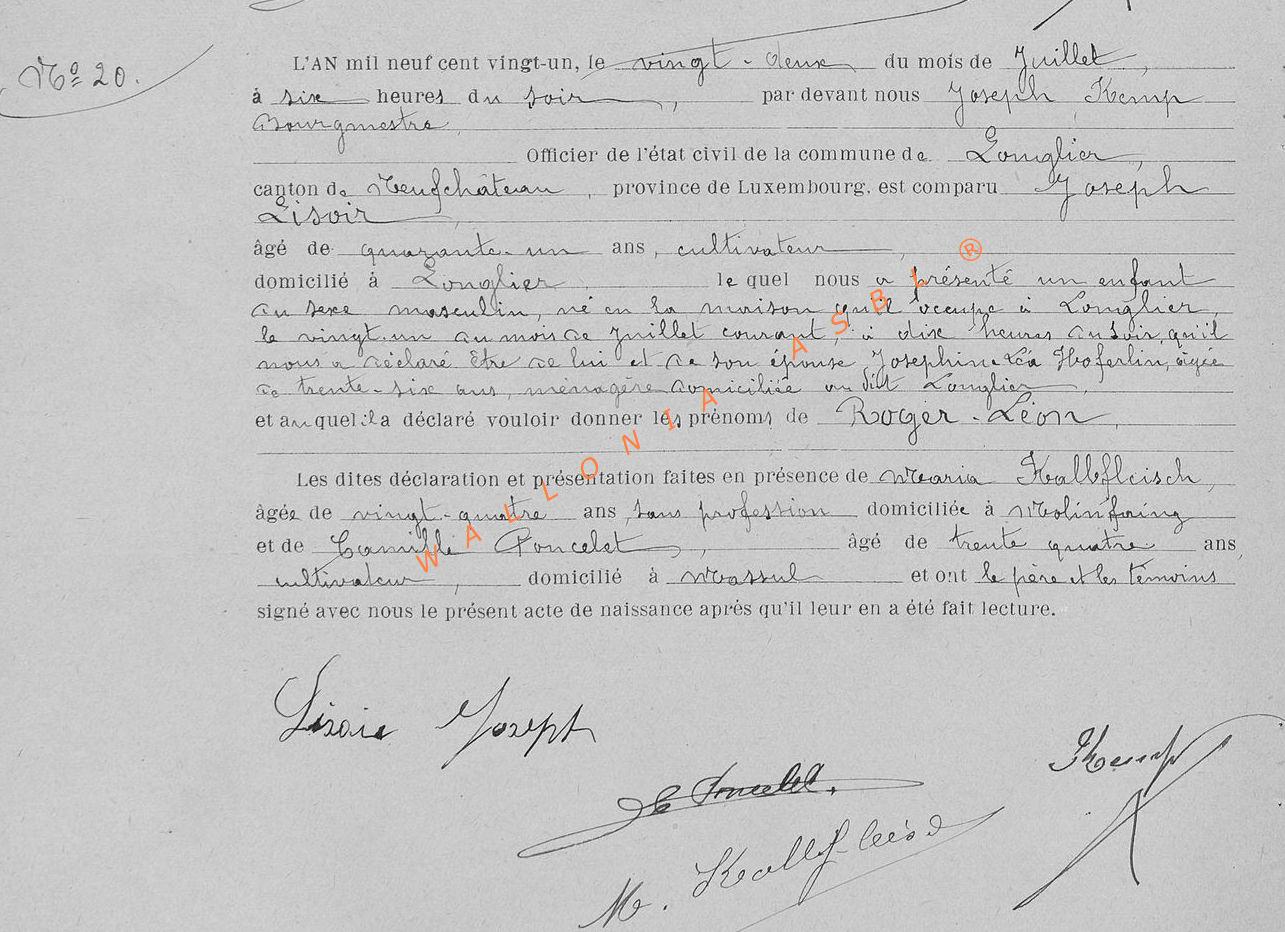 No 20.
L'AN mil neuf cent vingt-un, le vingt-deux du mois de Juillet,
à six heures du soir, par devant nous Joseph Kemp
Bourgmestre,
Officier de l'état civil de la commune de Longlier,
canton de Neufchâteau, province de Luxembourg, est comparu Joseph
Lisoir,
âgé de quarante-un ans, cultivateur,
domicilié à Longlier, lequel nous a présenté un enfant
du sexe masculin, né en la maison qu'il occupe à Longlier,
le vingt-un du mois de Juillet courant, à dix heures du soir, qu'il
nous a déclaré être de lui et de son épouse Josephine Léa Hoferlin, âgée
de trente-six ans, ménagère domiciliée au dit Longlier,
et auquel il a déclaré vouloir donner les prénoms de Roger-Léon,
Les dites déclaration et présentation faites en présence de Maria Kallfleisch,
âgée de vingt-quatre ans, sans profession domiciliée à Molinfaing
et de Camille Poncelet, âgé de trente quatre ans,
cultivateur, domicilié à Massul et ont le père et les témoins
signé avec nous le présent acte de naissance après qu'il leur en a été fait lecture.
Lisoir Joseph
C Poncelet.
Kemp
M. Kallfleisch
WALLONIA ASBL ®